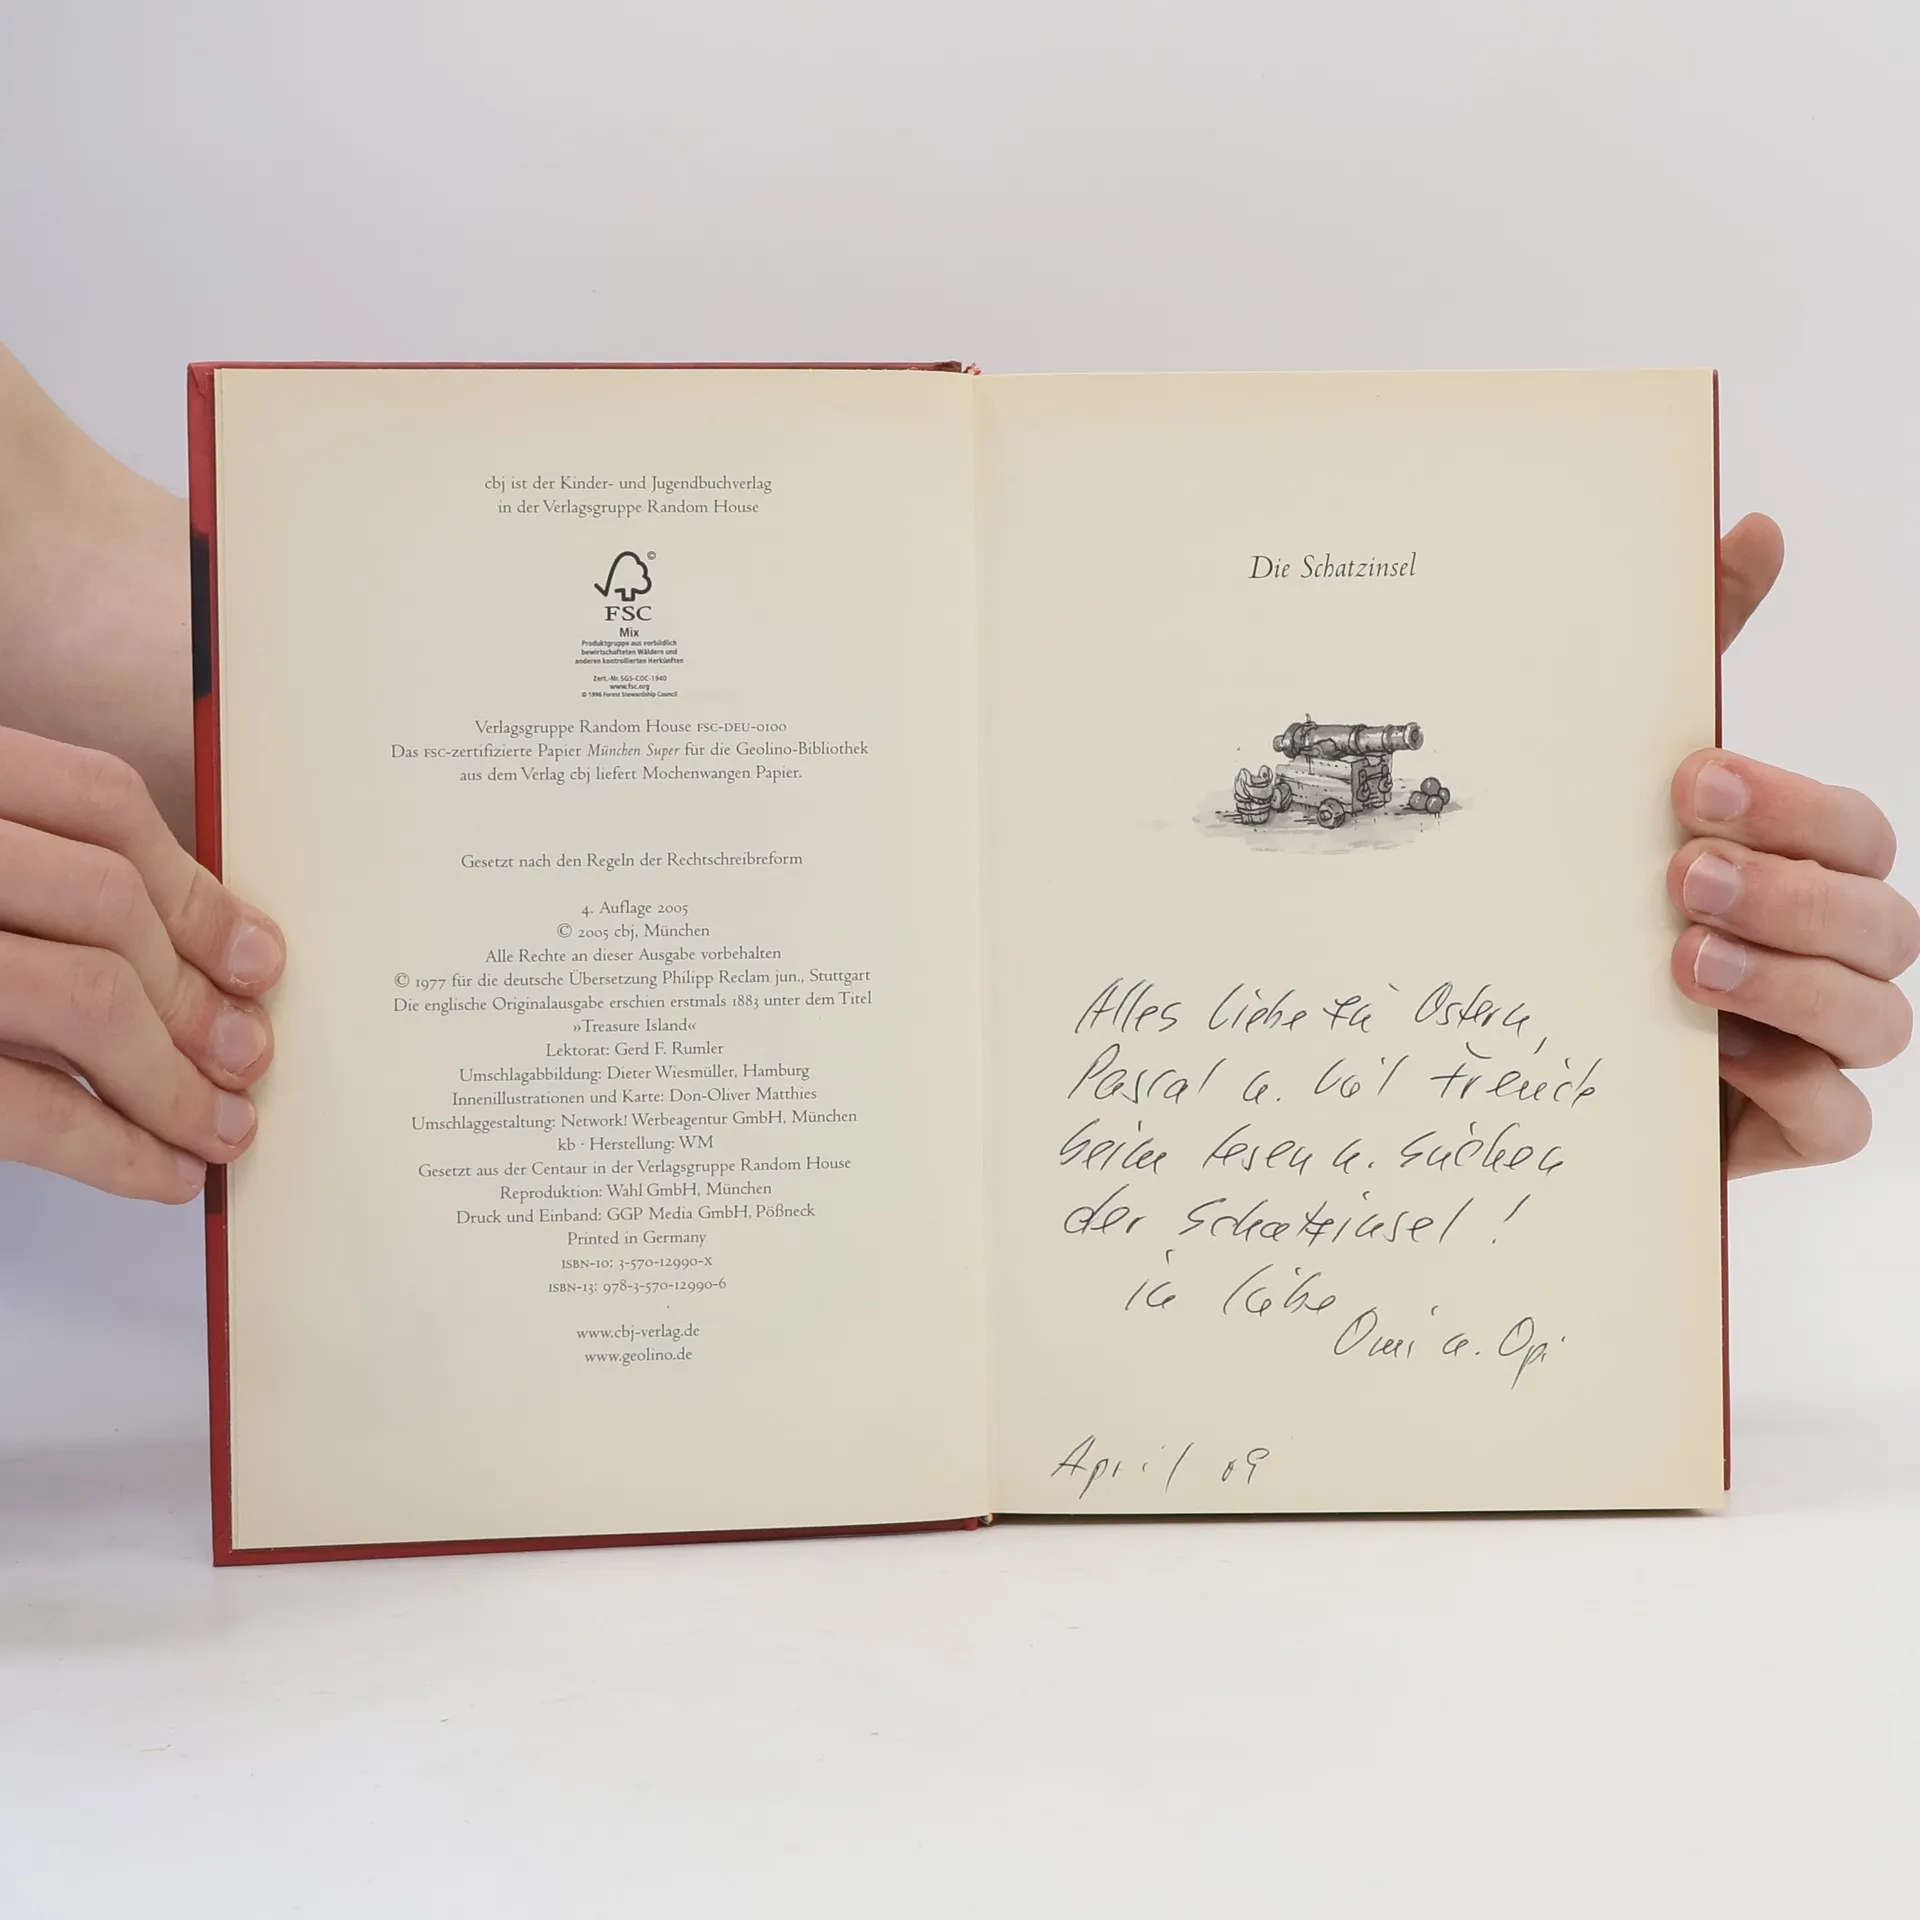 cbj ist der Kinder- und Jugendbuchverlag
in der Verlagsgruppe Random House
©
FSC
Mix
Produktgruppe aus vorbildlich
bewirtschafteten Wäldern und
anderen kontrollierten Herkünften
Zert.-Nr. SGS-COC-1940
www.fsc.org
© 1996 Forest Stewardship Council
Verlagsgruppe Random House FSC-DEU-0100
Das FSC-zertifizierte Papier München Super für die Geolino-Bibliothek
aus dem Verlag cbj liefert Mochenwangen Papier.
Gesetzt nach den Regeln der Rechtschreibreform
4. Auflage 2005
© 2005 cbj, München
Alle Rechte an dieser Ausgabe vorbehalten
© 1977 für die deutsche Übersetzung Philipp Reclam jun., Stuttgart
Die englische Originalausgabe erschien erstmals 1883 unter dem Titel
»Treasure Island«
Lektorat: Gerd F. Rumler
Umschlagabbildung: Dieter Wiesmüller, Hamburg
Innenillustrationen und Karte: Don-Oliver Matthies
Umschlaggestaltung: Network! Werbeagentur GmbH, München
kb · Herstellung: WM
Gesetzt aus der Centaur in der Verlagsgruppe Random House
Reproduktion: Wahl GmbH, München
Druck und Einband: GGP Media GmbH, Pößneck
Printed in Germany
ISBN-10: 3-570-12990-X
ISBN-13: 978-3-570-12990-6
www.cbj-verlag.de
www.geolino.de
Die Schatzinsel
Alles Liebe zu Ostern,
Pascal u. viel Freude
beim Lesen u. Suchen
der Schatzinsel!
in Liebe
Omi u. Opi
April 09